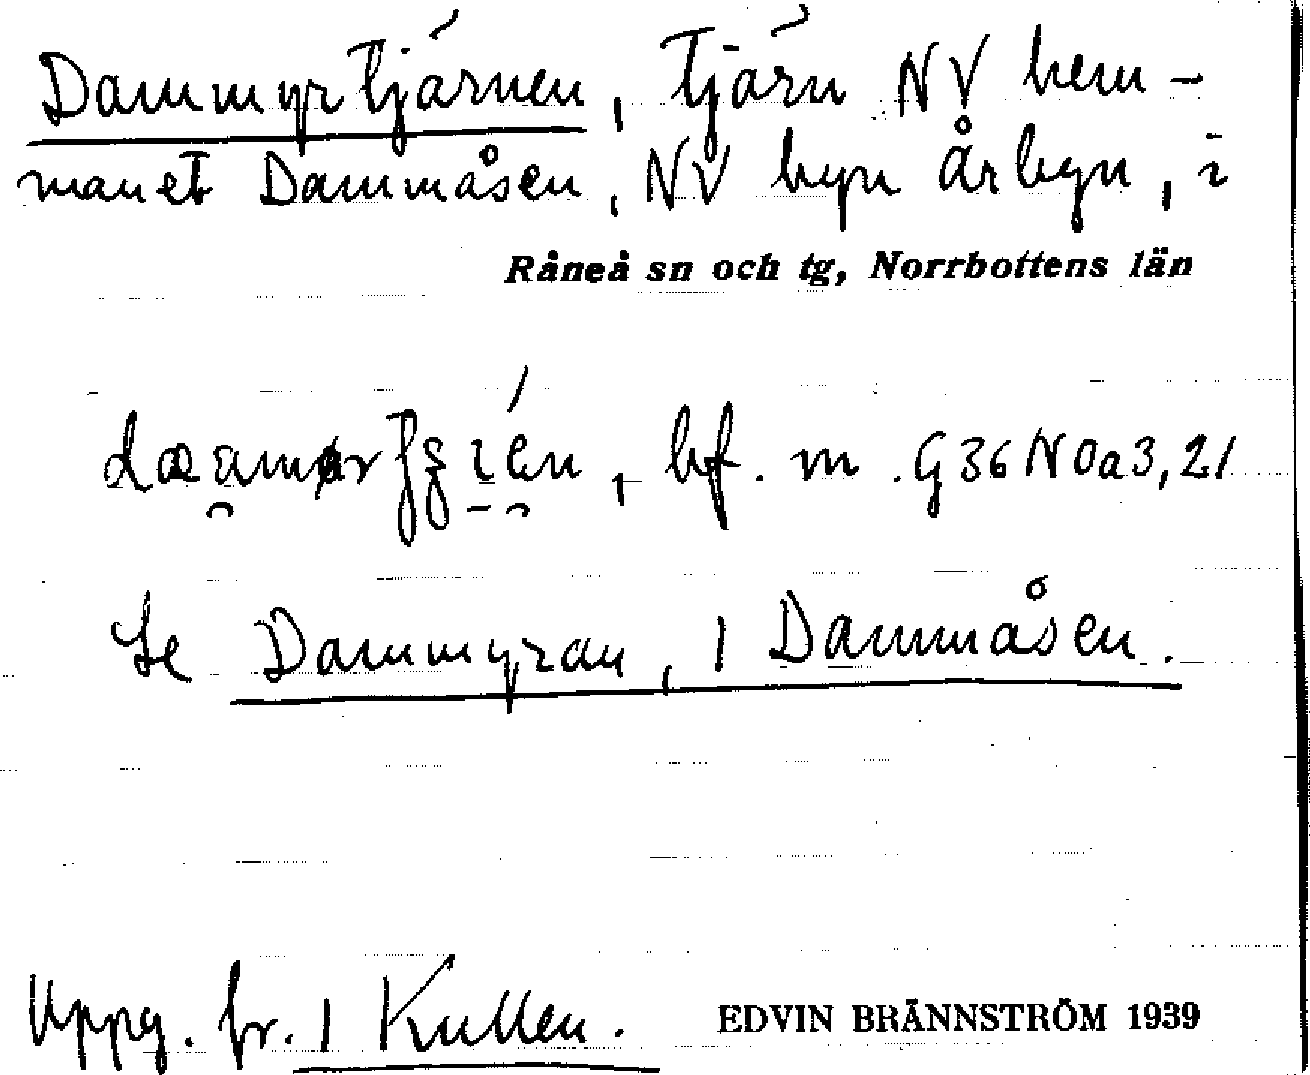 Dammyrtjärnen, tjärn NV hem-
manet Dammåsen, NV byn Årbyn, i
Råneå sn och tg, Norrbottens län
, bf. m. G36N0a3,21
Se Dammyran, 1 Dammåsen.
Uppg. fr. 1 Kullen. EDVIN BRÄNNSTRÖM 1939